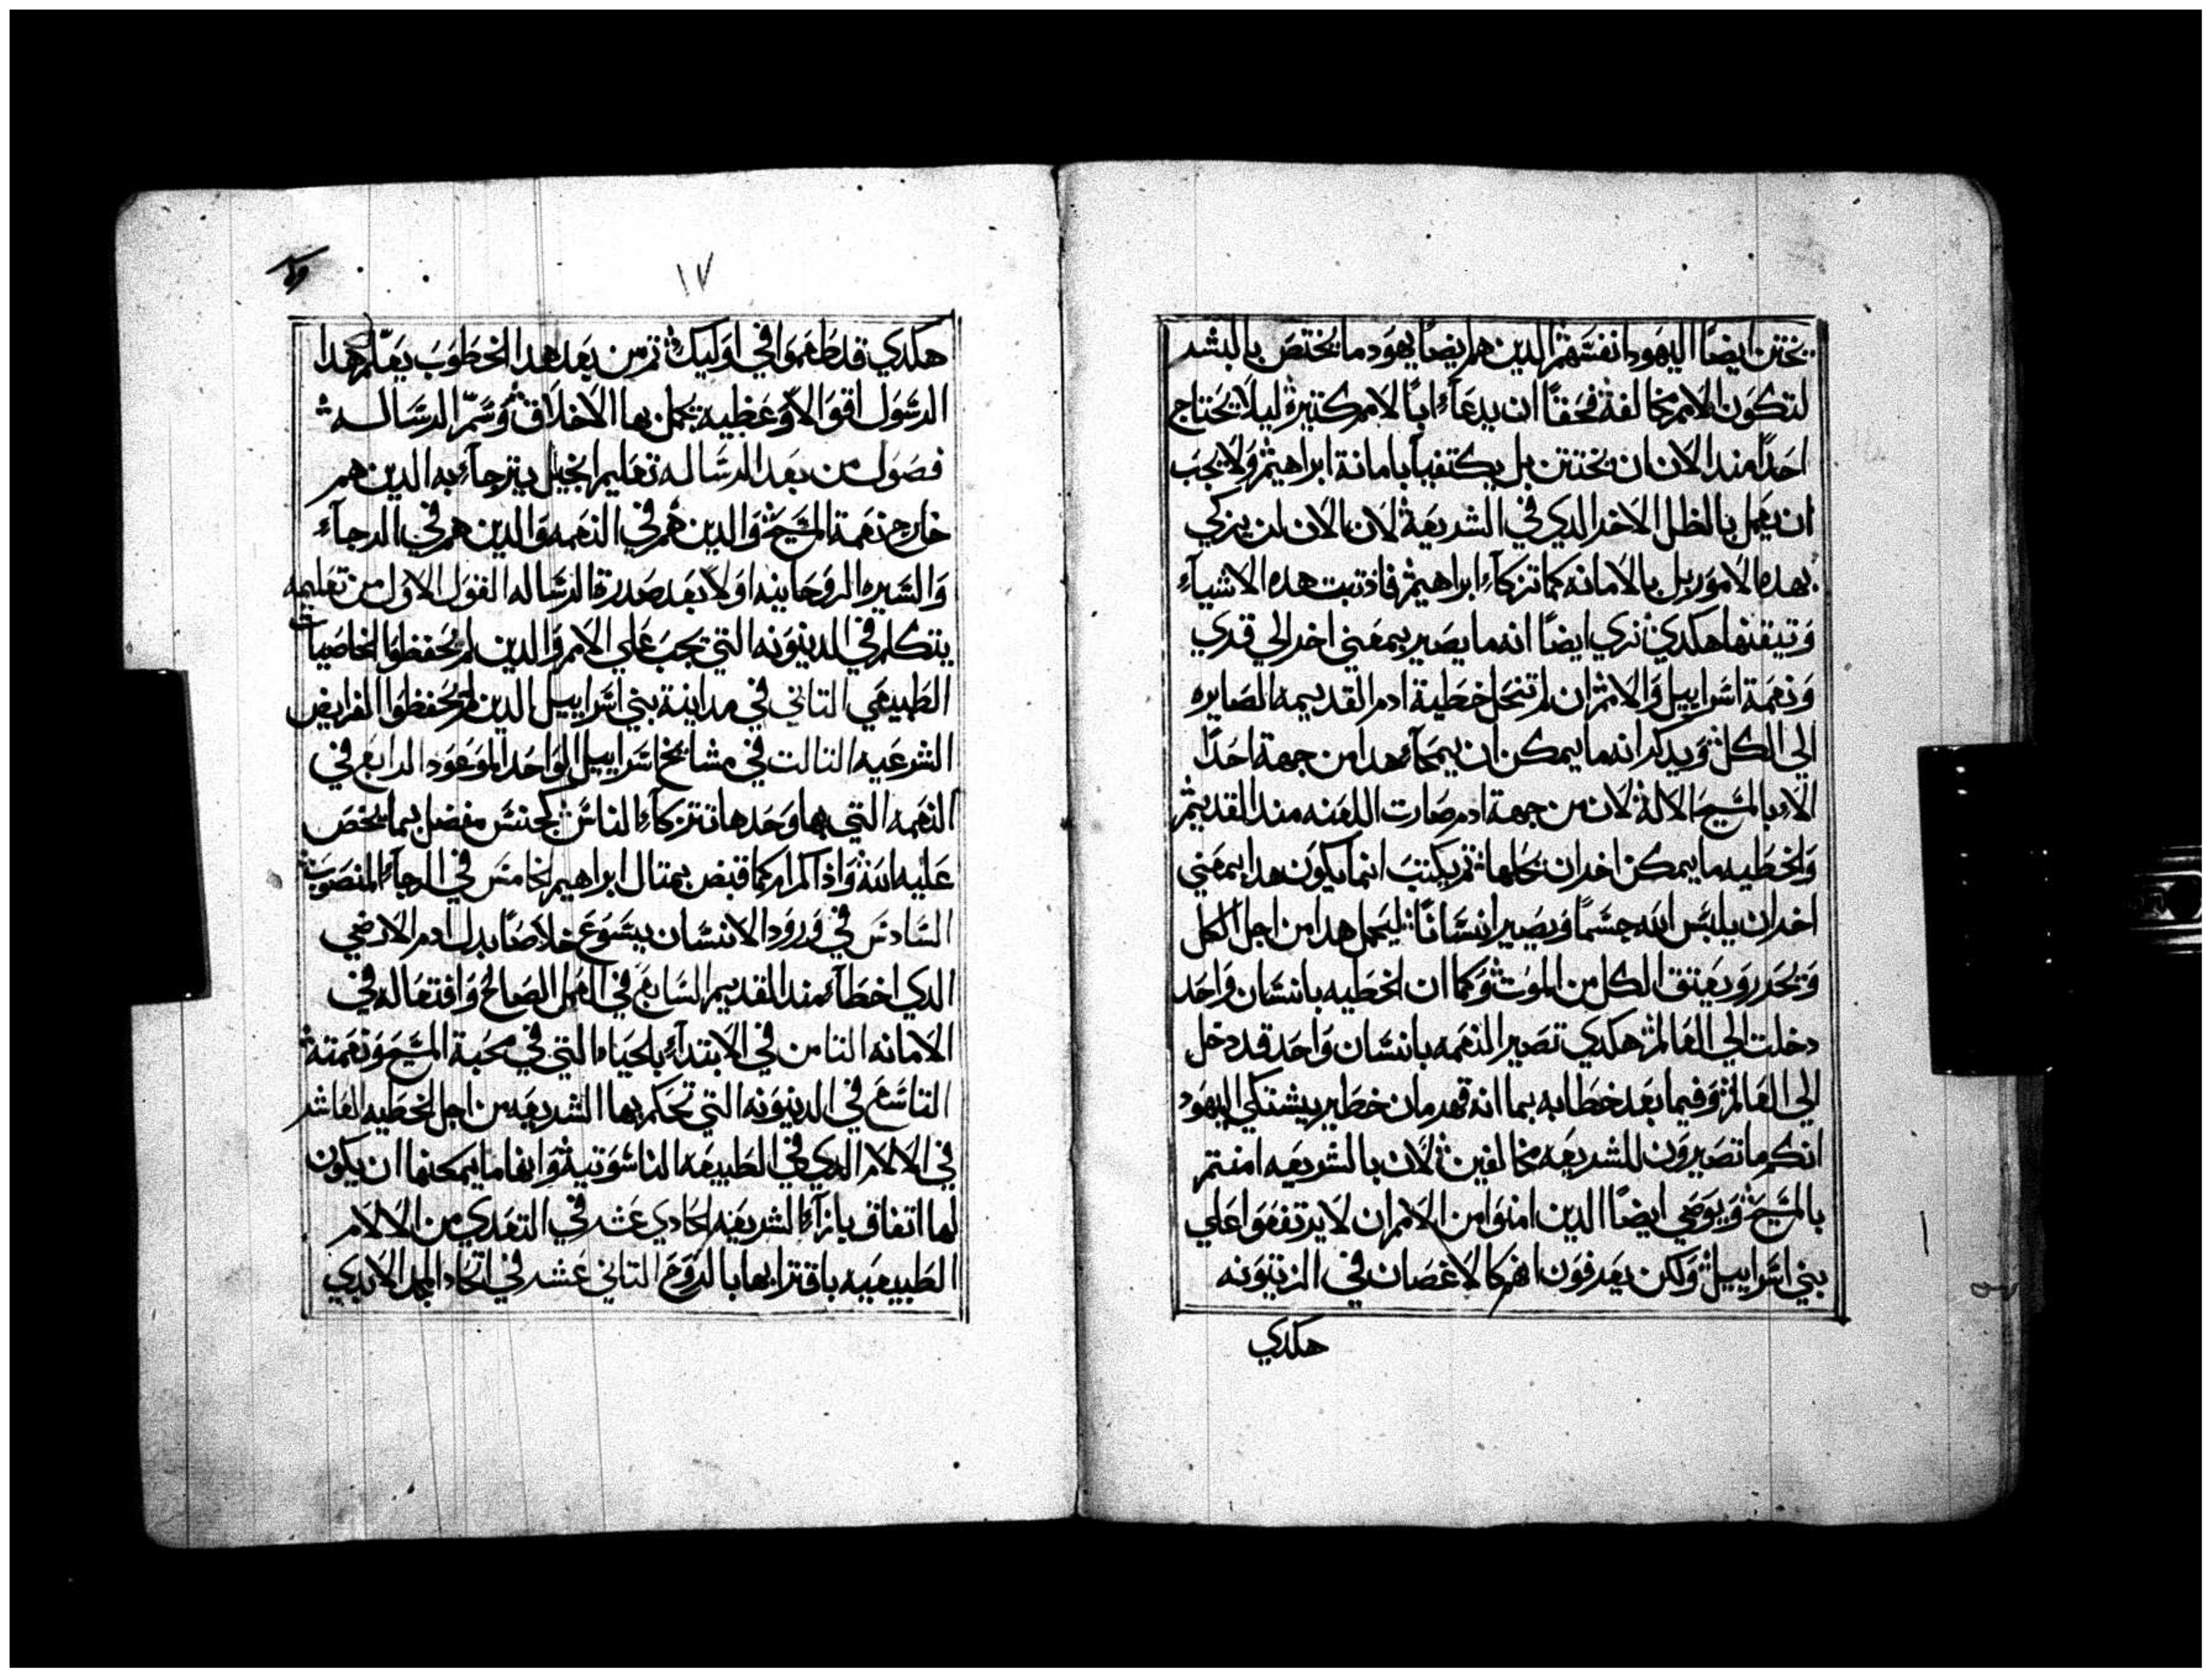 يختتن ايضًا اليهود انفسهم الدين هم ايضًا يهود ما يختص بالبشر
لتكون الامم مخالفة فحقًا ان يدعآء ابًا لامم كتيرة ليلا يحتاج
احدًا مند الان ان يختتن بل يكتفيآ بامانة ابراهيم ولا يجب
ان يعمل بالظل الاخر الدي في الشريعة لان الان لن يزكي
بهده الامور بل بالامانه كما تزكآء ابراهيم فاذ تبت هده الاشيآء
وتيقنها هكدي نري ايضًا انه ما يصير بمعني اخر الي قدي
ونعمة اسراييل والامم ان لم تنحل خطية ادم القديمه الصايره
الي الكل ويدكر انه ما يمكن ان يمحآء هدا من جهة احدًا
الاء بالمسيح الالة لان من جهة ادم صارت اللعنه مند القديم
والخطيه ما يمكن اخر ان يحلها تم يكتب انما يكون هدا بمعني
اخر ان يلبس الله جسمًا ويصير انسانًا ليحمل هدا من اجل الكل
ويحرر ويعتق الكل من الموت وكما ان الخطيه بانسان واحد
دخلت الي العالم هكدي تصير النعمه بانسان واحد قد دخل
الي العالم وفيما بعد خطابه بما انه قهرمان خطير يشتكي اليهود
انكم ما تصيرون للشريعه مخالفين لان بالشريعه امنتم
بالمسيح ويوصي ايضًا الدين امنوا من الامم ان لا يرتفعوا علي
بني اسراييل ولكن يعرفون انهم كالاغصان في الزيتونه
هكدي
١٧
هكدي قد طعموا في اوليك تم من بعد هدا الخطوب يعلم هدا
الرسول اقوالاً وعظيه يجمل بها الاخلاق وسم الرساله
فصول من بعد الرساله تعليم انجيل يترجآء به الدين هم
خارج نعمة المسيح والدين هم في النعمه والدين هم في الرجآء
والسيره الروحانيه اولا بعد صدرة الرساله القول الاول من تعليمه
يتكلم في الدينونه التي تجب علي الامم والدين لم يحفظوا الخاصيات
الطبيعي التاني في مداينة بني اسراييل الدين لم يحفظوا الفرايض
الشرعيه التالت في مشايخ اسراييل الواحد الموعود الرابع في
النعمه التي بها وحدها تتزكآء الناس كجنس مفصل بما يخص
عليه الله واذ اكرام كما قبض بمتال ابراهيم الخامس في الرجآء المنصوب
السادس في ورود الانسان يسوع خلاصًا بدل ادم الارضي
الدي اخطآء مند القديم السابع في العمل الصالح وافتعاله في
الامانه التامن في الابتدآء بالحياه التي في محبة المسيح ونعمتة
التاسع في الدينونه التي تحكم بها الشريعه من اجل الخطيه العاشر
في الالام الدي في الطبيعه الناسوتية وانها ما يمكنها ان يكون
لها اتفاق بازآء الشريعه الحادي عشر في التعدي من الالام
الطبيعيه باقترابها بالروح التاني عشر في اتحاد المجد الابدي